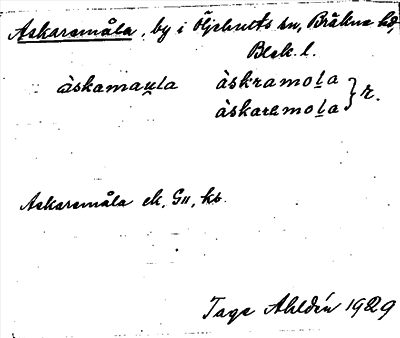 Askaremåla, by i Öljehults sn, Bräkne hd,
Blek. l.
àskamau̠la àskramol̠a
àskaremol̠a } r.
Askaremåla ek, G11, kb.
Tage Ahldén 1929